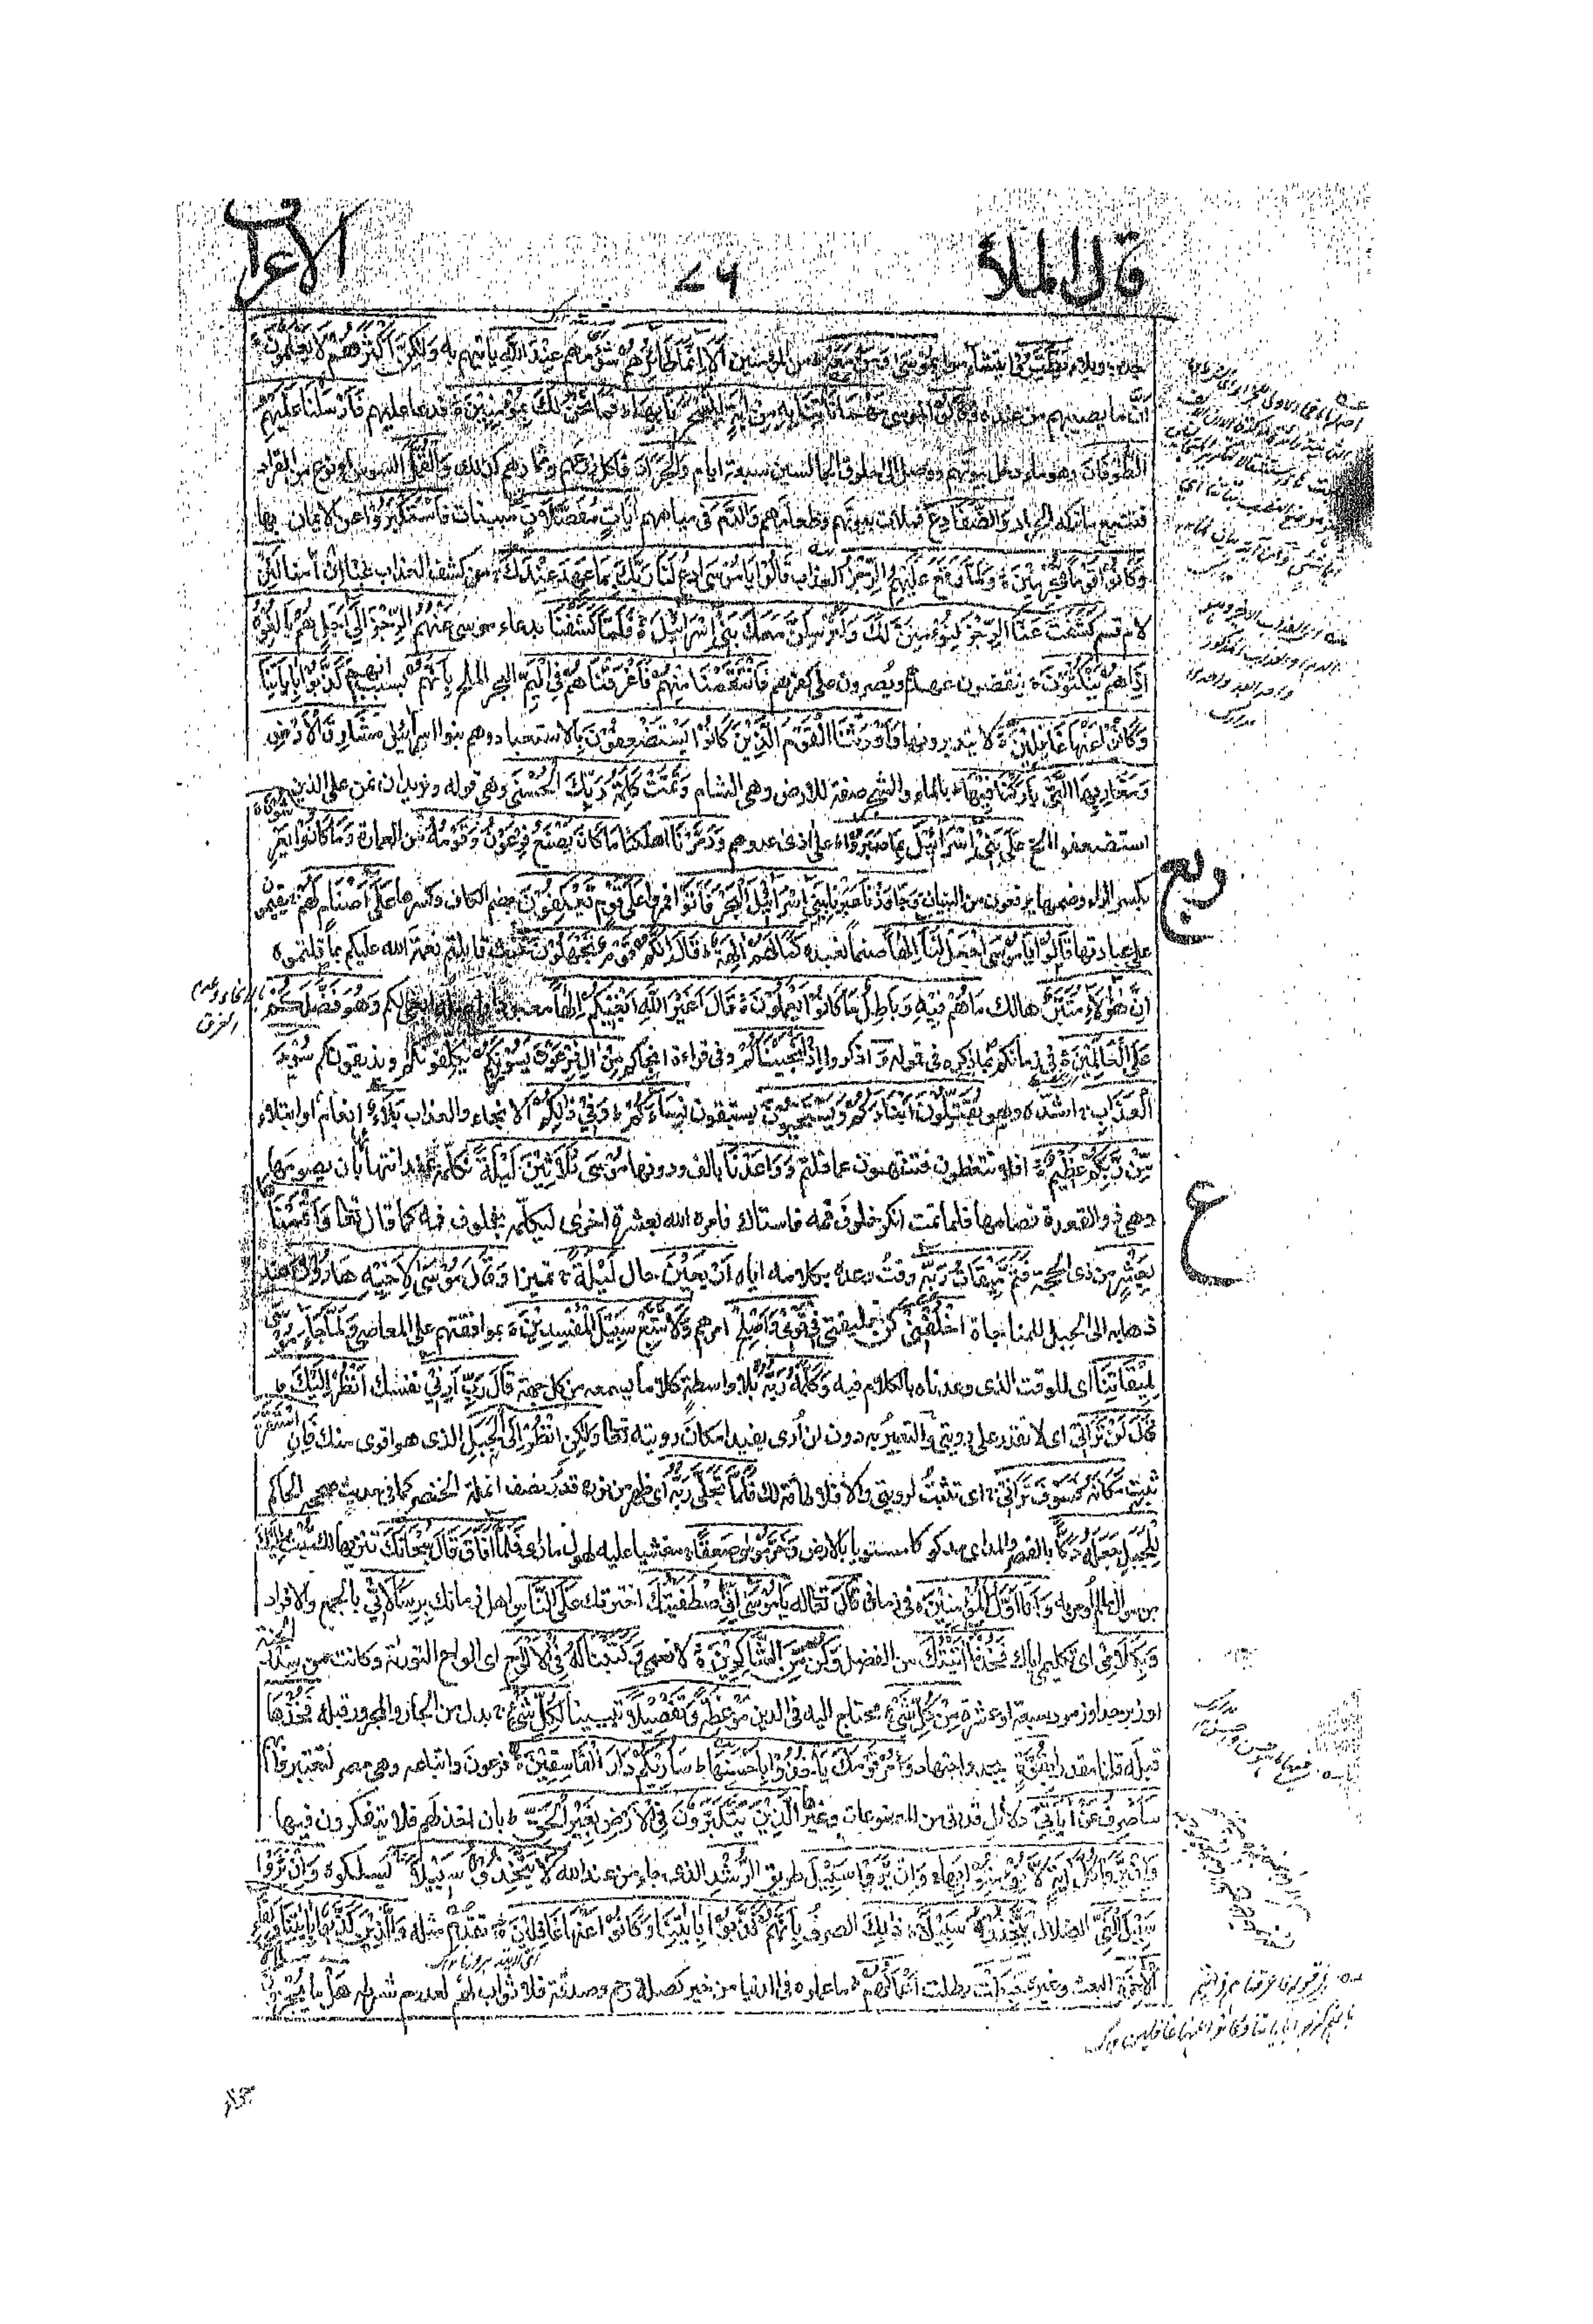 قال الملأ
٧٦
الاعراف
جدب وبلاء يَطَّيَّرُوْا يتشاءموا بِمُوْسٰى وَمَنْ مَّعَهٗ من المؤمنين اَلَا اِنَّمَا طَائِرُهُمْ شؤمهم عِنْدَ اللّٰهِ ياتيهم به وَلٰكِنَّ اَكْثَرَهُمْ لَا يَعْلَمُوْنَ
ان ما يصيبهم من عنده وَقَالُوْا لموسى مَهْمَا تَاْتِنَا بِهٖ مِنْ اٰيَةٍ لِتَسْحَرَنَا بِهَا فَمَا نَحْنُ لَكَ بِمُؤْمِنِيْنَ فدعا عليهم فَاَرْسَلْنَا عَلَيْهِمُ
الطُّوْفَانَ وهو ماء دخل بيوتهم ووصل الى حلوق الجالسين سبعة ايام وَالْجَرَادَ فاكل زرعهم وثمارهم كذلك وَالْقُمَّلَ السوس او نوع من القراد
فتتبع ما تركه الجراد وَالضَّفَادِعَ فملأت بيوتهم وطعامهم وَالدَّمَ فى مياههم اٰيَاتٍ مُفَصَّلَاتٍ مبينات فَاسْتَكْبَرُوْا عن الايمان بها
وَكَانُوْا قَوْمًا مُجْرِمِيْنَ وَلَمَّا وَقَعَ عَلَيْهِمُ الرِّجْزُ العذاب قَالُوْا يَا مُوْسَى ادْعُ لَنَا رَبَّكَ بِمَا عَهِدَ عِنْدَكَ من كشف العذاب عنا ان اٰمنا لَئِنْ
لام قسم كَشَفْتَ عَنَّا الرِّجْزَ لَنُؤْمِنَنَّ لَكَ وَلَنُرْسِلَنَّ مَعَكَ بَنِىْ اِسْرَائِيْلَ فَلَمَّا كَشَفْنَا بدعاء موسى عَنْهُمُ الرِّجْزَ اِلٰى اَجَلٍ هُمْ بَالِغُوْهُ
اِذَا هُمْ يَنْكُثُوْنَ ينقضون عهدهم ويصرون على كفرهم فَانْتَقَمْنَا مِنْهُمْ فَاَغْرَقْنَاهُمْ فِى الْيَمِّ البحر الملح بِاَنَّهُمْ بسبب انهم كَذَّبُوْا بِاٰيَاتِنَا
وَكَانُوْا عَنْهَا غَافِلِيْنَ لا يتدبرونها وَاَوْرَثْنَا الْقَوْمَ الَّذِيْنَ كَانُوْا يُسْتَضْعَفُوْنَ بالاستعباد وهم بنو اسرائيل مَشَارِقَ الْاَرْضِ
وَمَغَارِبَهَا الَّتِىْ بَارَكْنَا فِيْهَا بالماء والشجر صفة للارض وهى الشام وَتَمَّتْ كَلِمَةُ رَبِّكَ الْحُسْنٰى وهى قوله ونريد ان نمن على الذين
استضعفوا الخ عَلٰى بَنِىْ اِسْرَائِيْلَ بِمَا صَبَرُوْا على اذى عدوهم وَدَمَّرْنَا اهلكنا مَا كَانَ يَصْنَعُ فِرْعَوْنُ وَقَوْمُهٗ من العمارة وَمَا كَانُوْا يَعْرِشُوْنَ
بكسر الراء وضمها يرفعون من البنيان وَجَاوَزْنَا عبرنا بِبَنِىْ اِسْرَائِيْلَ الْبَحْرَ فَاَتَوْا فمروا عَلٰى قَوْمٍ يَعْكُفُوْنَ بضم الكاف وكسرها عَلٰى اَصْنَامٍ لَهُمْ يقيمون
على عبادتها قَالُوْا يَا مُوْسَى اجْعَلْ لَنَا اِلٰهًا صنما نعبده كَمَا لَهُمْ اٰلِهَةٌ قَالَ اِنَّكُمْ قَوْمٌ تَجْهَلُوْنَ حيث قابلتم نعمة الله عليكم بما قلتموه
اِنَّ هٰؤُلَاءِ مُتَبَّرٌ هالك مَا هُمْ فِيْهِ وَبَاطِلٌ مَا كَانُوْا يَعْمَلُوْنَ قَالَ اَغَيْرَ اللّٰهِ اَبْغِيْكُمْ اِلٰهًا معبودا واصله ابغى لكم وَهُوَ فَضَّلَكُمْ
عَلَى الْعَالَمِيْنَ فى زمانكم بما ذكره فى قوله وَ اذكروا اِذْ اَنْجَيْنَاكُمْ وفى قراءة انجاكم مِنْ اٰلِ فِرْعَوْنَ يَسُوْمُوْنَكُمْ يكلفونكم ويذيقونكم سُوْءَ
الْعَذَابِ اشده وهو يُقَتِّلُوْنَ اَبْنَاءَكُمْ وَيَسْتَحْيُوْنَ يستبقون نِسَاءَكُمْ وَفِىْ ذٰلِكُمْ الانجاء والعذاب بَلَاءٌ انعام او ابتلاء
مِنْ رَبِّكُمْ عَظِيْمٌ افلا تتعظون فتنتهون عما قلتم وَوَاعَدْنَا بالف ودونها مُوْسٰى ثَلَاثِيْنَ لَيْلَةً نكلمه عند انتهائها بان يصومها
وهى ذو القعدة فصامها فلما تمت انكر خلوف فمه فاستاك فامره الله بعشرة اخرى ليكلمه بخلوف فمه كما قال تعالى وَاَتْمَمْنَاهَا
بِعَشْرٍ من ذى الحجة فَتَمَّ مِيْقَاتُ رَبِّهٖ وقت وعده بكلامه اياه اَرْبَعِيْنَ حال لَيْلَةً تمييز وَقَالَ مُوْسٰى لِاَخِيْهِ هَارُوْنَ عند
ذهابه الى الجبل للمناجاة اخْلُفْنِىْ كن خليفتى فِىْ قَوْمِىْ وَاَصْلِحْ امرهم وَلَا تَتَّبِعْ سَبِيْلَ الْمُفْسِدِيْنَ بموافقتهم على المعاصى وَلَمَّا جَاءَ مُوْسٰى
لِمِيْقَاتِنَا اى للوقت الذى وعدناه بالكلام فيه وَكَلَّمَهٗ رَبُّهٗ بلا واسطة كلاما يسمعه من كل جهة قَالَ رَبِّ اَرِنِىْ نفسك اَنْظُرْ اِلَيْكَ
قَالَ لَنْ تَرَانِىْ اى لا تقدر على رؤيتى والتعبير به دون لن أرى يفيد امكان رؤيته تعالى وَلٰكِنِ انْظُرْ اِلَى الْجَبَلِ الذى هو اقوى منك فَاِنِ اسْتَقَرَّ
ثبت مَكَانَهٗ فَسَوْفَ تَرَانِىْ اى تثبت لرؤيتى والا فلا طاقة لك فَلَمَّا تَجَلّٰى رَبُّهٗ اى ظهر من نوره قدر نصف انملة الخنصر كما فى حديث صححه الحاكم
لِلْجَبَلِ جَعَلَهٗ دَكًّا بالقصر والمد اى مدكوكا مستويا بالارض وَخَرَّ مُوْسٰى صَعِقًا مغشيا عليه لهول ما راى فَلَمَّا اَفَاقَ قَالَ سُبْحَانَكَ تنزيها لك تُبْتُ اِلَيْكَ
من سوال ما لم أومر به وَاَنَا اَوَّلُ الْمُؤْمِنِيْنَ فى زمانى قَالَ تعالى له يَا مُوْسٰى اِنِّى اصْطَفَيْتُكَ اخترتك عَلَى النَّاسِ اهل زمانك بِرِسَالَاتِىْ بالجمع والافراد
وَبِكَلَامِىْ اى تكليمى اياك فَخُذْ مَا اٰتَيْتُكَ من الفضل وَكُنْ مِنَ الشَّاكِرِيْنَ لانعمى وَكَتَبْنَا لَهٗ فِى الْاَلْوَاحِ اى الواح التورىة وكانت من سدر الجنة
او زبرجد او زمرد سبعة او عشرة مِنْ كُلِّ شَىْءٍ يحتاج اليه فى الدين مَوْعِظَةً وَتَفْصِيْلًا تبيينا لِكُلِّ شَىْءٍ بدل من الجار والمجرور قبله فَخُذْهَا
قبله قلنا مقدرا بِقُوَّةٍ بجد واجتهاد وَاْمُرْ قَوْمَكَ يَاْخُذُوْا بِاَحْسَنِهَا سَاُرِيْكُمْ دَارَ الْفَاسِقِيْنَ فرعون واتباعه وهى مصر لتعتبروا بها
سَاَصْرِفُ عَنْ اٰيَاتِىَ دلائل قدرتى من المصنوعات وغيرها الَّذِيْنَ يَتَكَبَّرُوْنَ فِى الْاَرْضِ بِغَيْرِ الْحَقِّ بان اخذلهم فلا يتفكرون فيها
وَاِنْ يَرَوْا كُلَّ اٰيَةٍ لَا يُؤْمِنُوْا بِهَا وَاِنْ يَرَوْا سَبِيْلَ طريق الرُّشْدِ الذى جاء من عند الله لَا يَتَّخِذُوْهُ سَبِيْلًا يسلكوه وَاِنْ يَرَوْا
سَبِيْلَ الْغَىِّ الضلال يَتَّخِذُوْهُ سَبِيْلًا ذٰلِكَ الصرف بِاَنَّهُمْ كَذَّبُوْا بِاٰيَاتِنَا وَكَانُوْا عَنْهَا غَافِلِيْنَ تقدم مثله وَالَّذِيْنَ كَذَّبُوْا بِاٰيَاتِنَا وَلِقَاءِ
الْاٰخِرَةِ البعث وغيره حَبِطَتْ بطلت اَعْمَالُهُمْ ما عملوه فى الدنيا من خير كصلة رحم وصدقة فلا ثواب لهم لعدم شرطه هَلْ ما يُجْزَوْنَ
ع